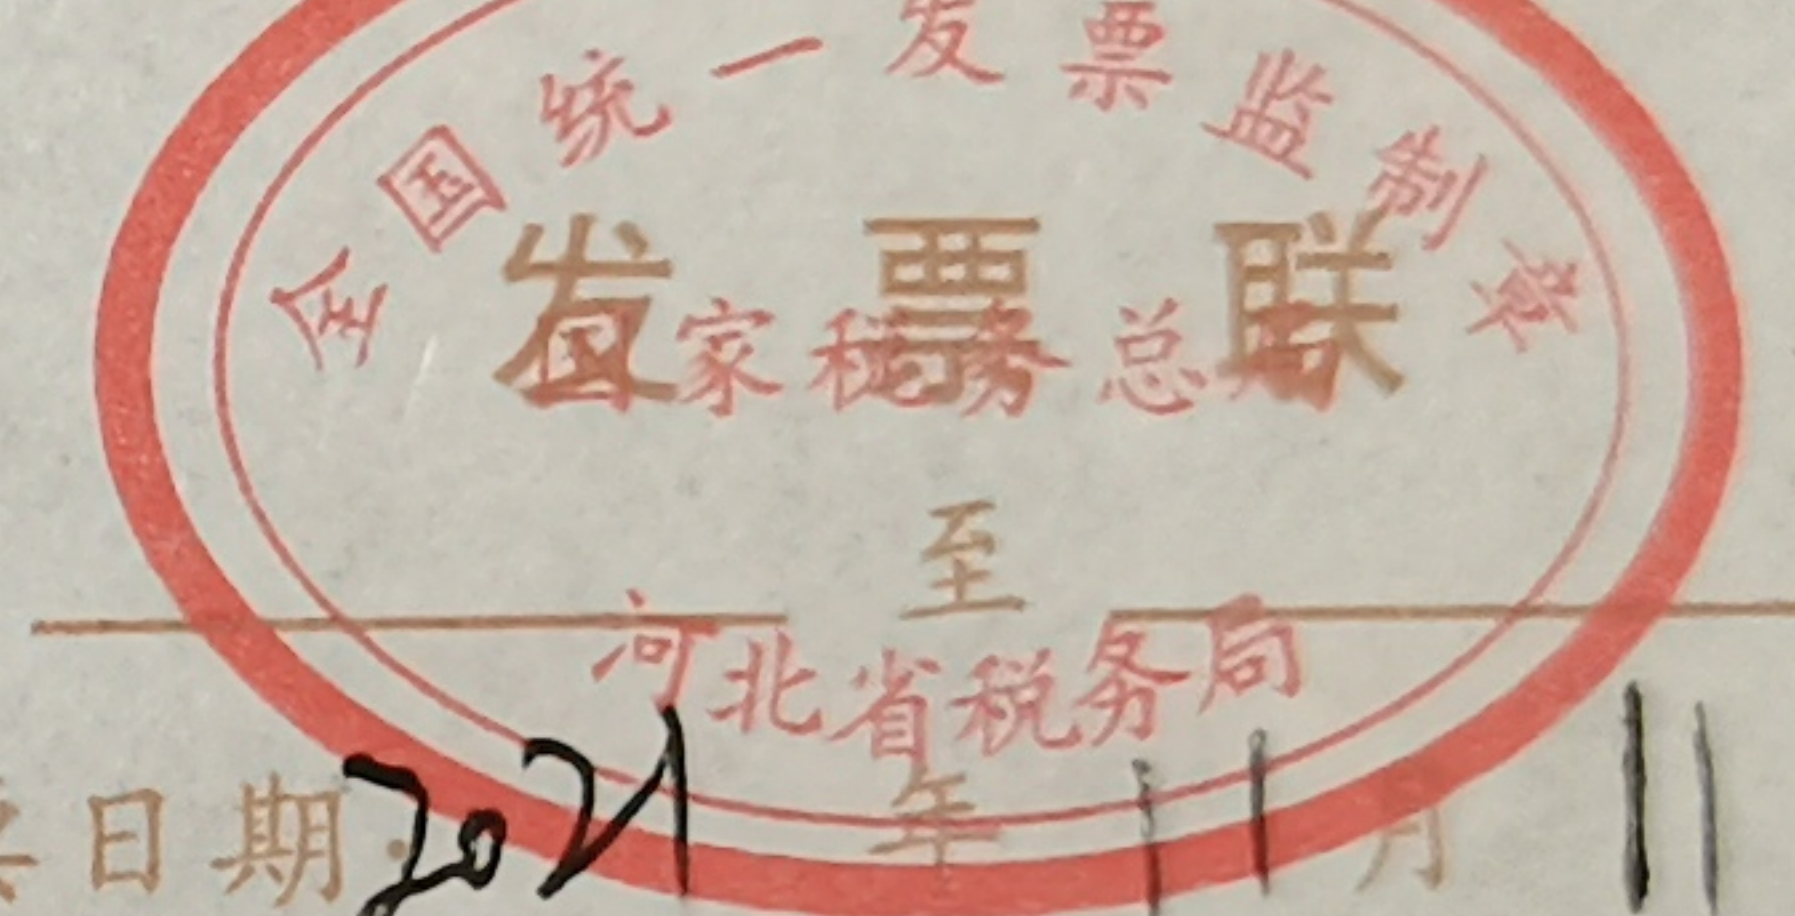 全国统一发票监制章
发票联
国家税务总局
至
河北省税务局
日期:2021年11月11